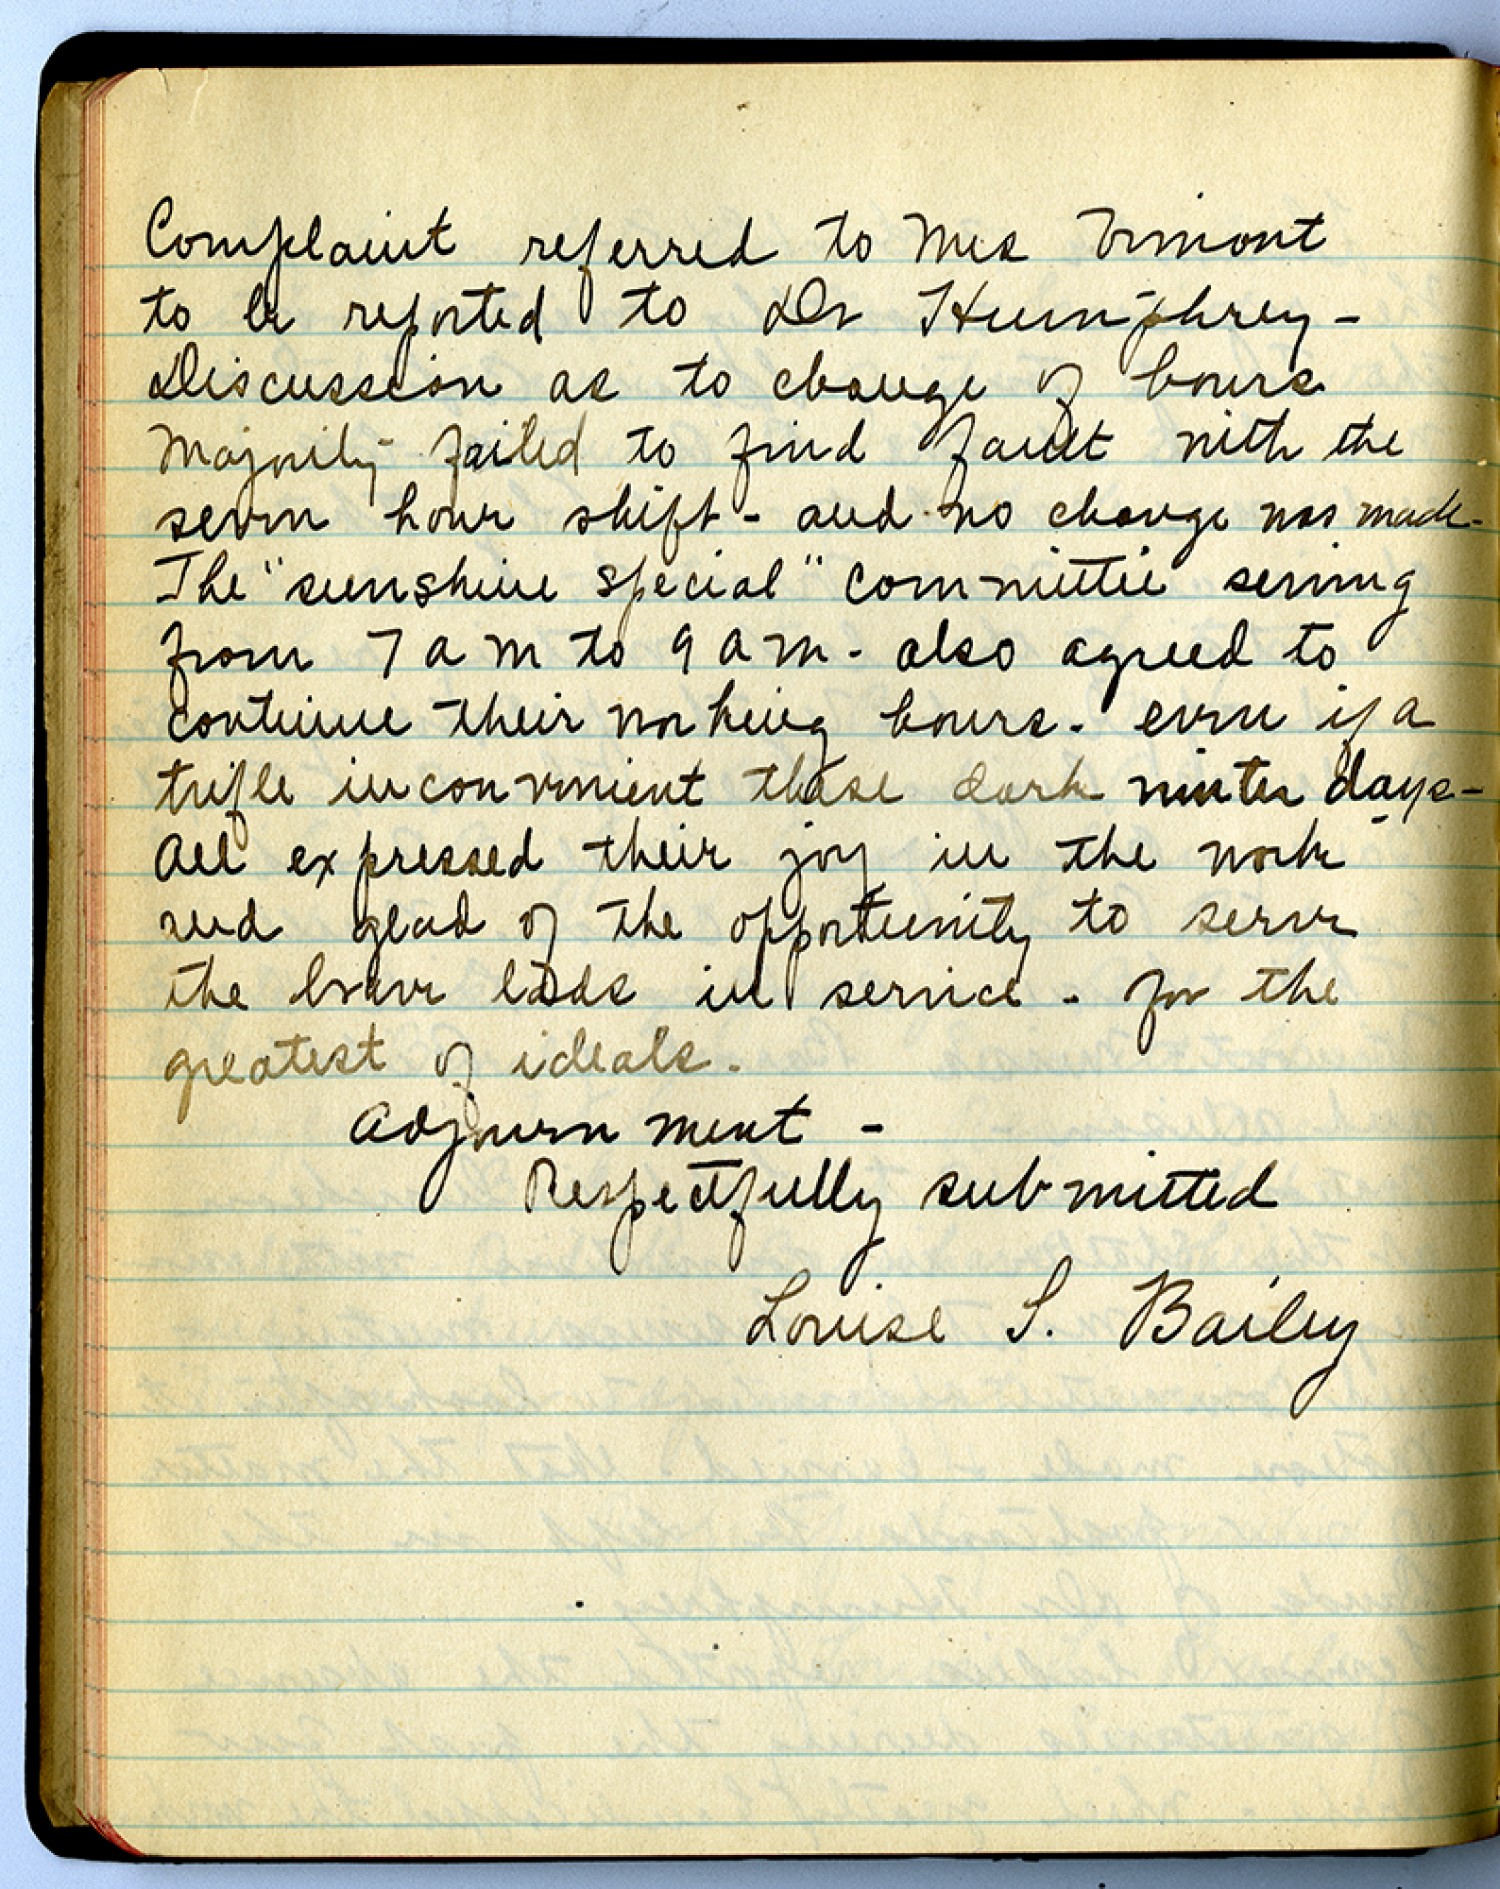 Complaint referred to Mrs Vimont
to be reported to Dr Humphrey -
Discussion as to change of hours
Majority failed to find fault with the
seven hour shift - and no change was made -
The "sunshine special" committee serving
from 7 a m to 9 a m - also agreed to
continue their working hours - even if a
trifle inconvenient these dark winter days -
All expressed their joy in the work
and glad of the opportunity to serve
the brave lads in service - for the
greatest of ideals.
Adjournment -
Respectfully submitted
Louise S. Bailey